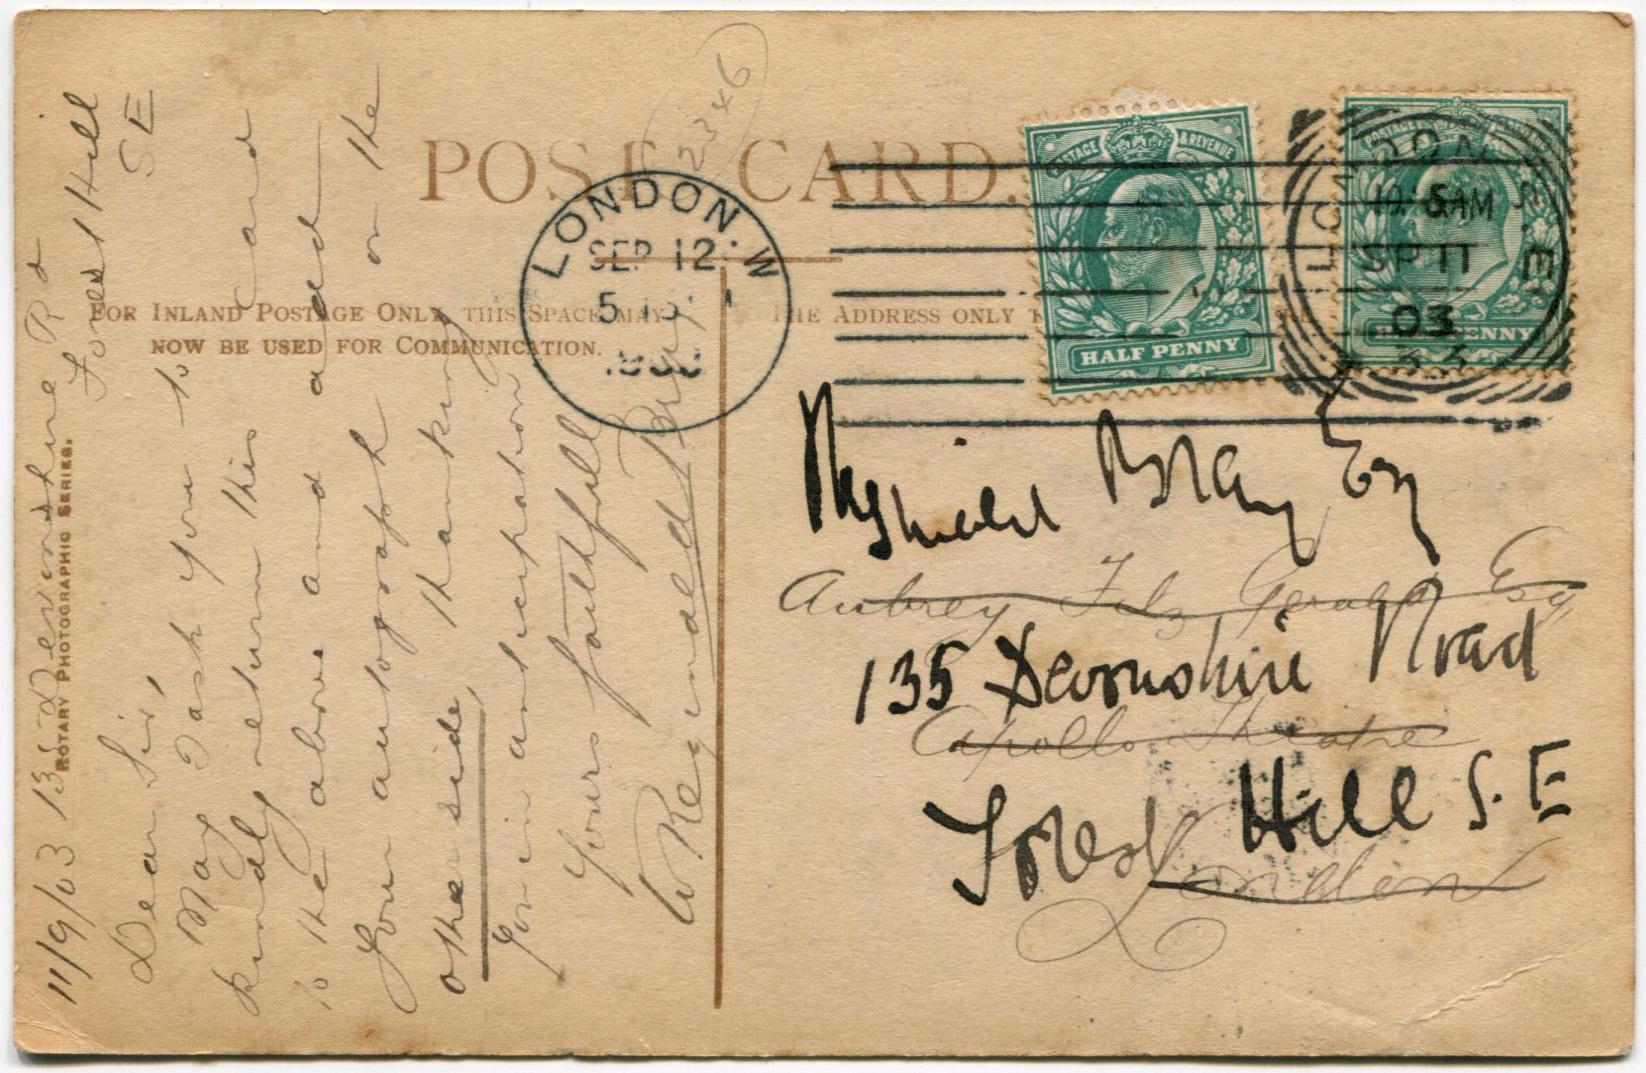 POST CARD.
FOR INLAND POSTAGE ONLY, THIS SPACE MAY
NOW BE USED FOR COMMUNICATION.
THE ADDRESS ONLY
ROTARY PHOTOGRAPHIC SERIES.
2346
LONDON. W
SEP 12
5
POSTAGE & REVENUE
HALF PENNY
LONDON S.E
AM
SP 11
03
11/9/03 135 Devonshire Rd
Forest Hill
SE
Dear Sir,
May I ask you to
kindly return this card
to the above and add
your autograph on the
other side,
thanking
you in anticipation
Yours faithfully
W Reginald Bray
Reginald Bray Esq
Aubrey Fitz Gerald Esq
135 Devonshire Road
Apollo Theatre
Forest Hill S.E
London